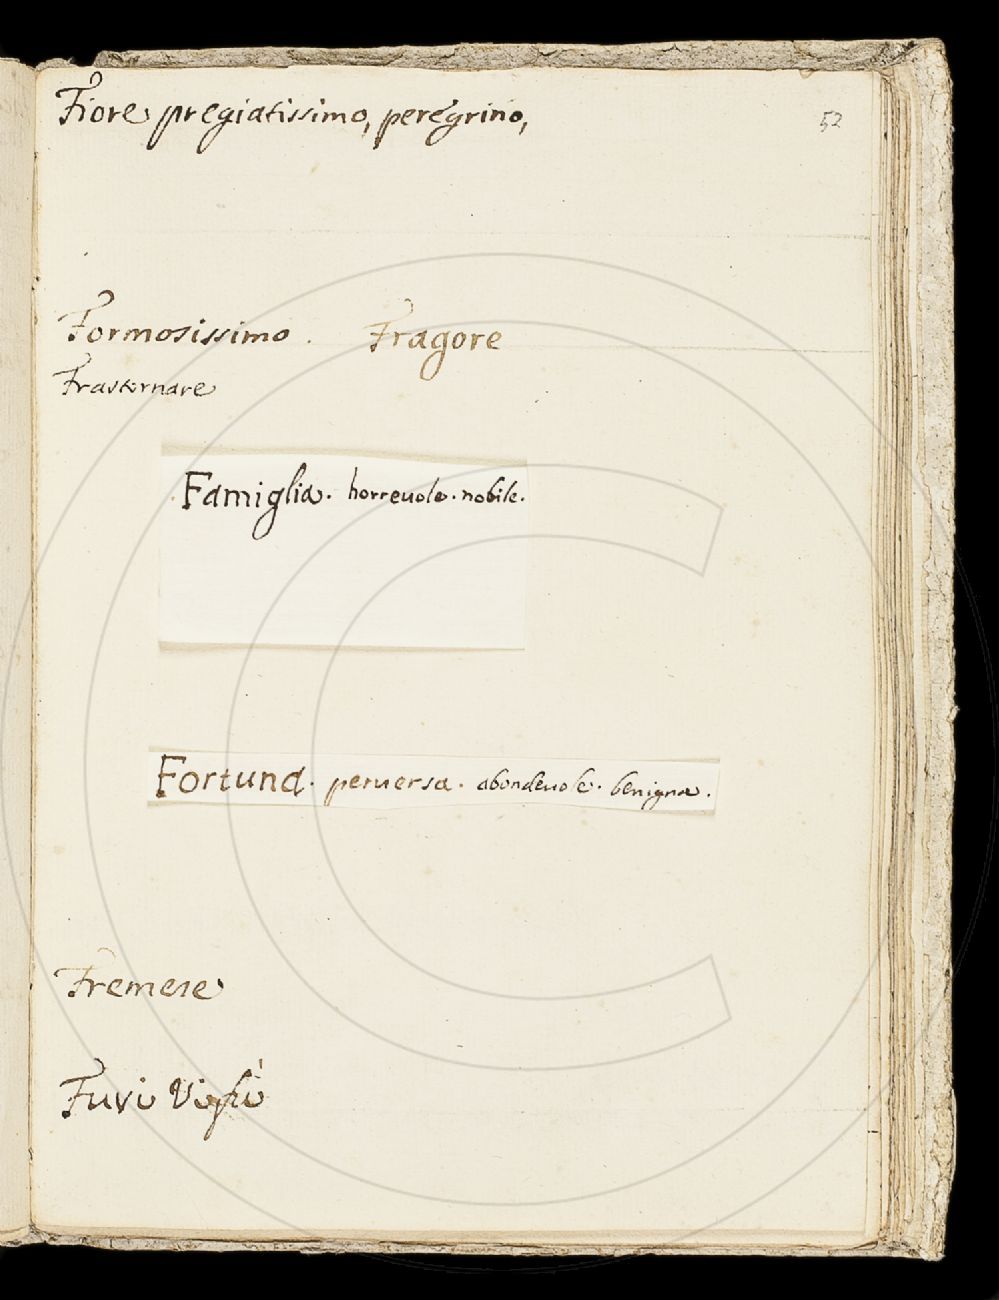 Fiore pregiatissimo, peregrino,
52
Formosissimo. Fragore
Frastornare
Famiglia. horreuole. nobile.
Fortuna. peruersa. abondeuole. benigna.
Fremere
Fuvi